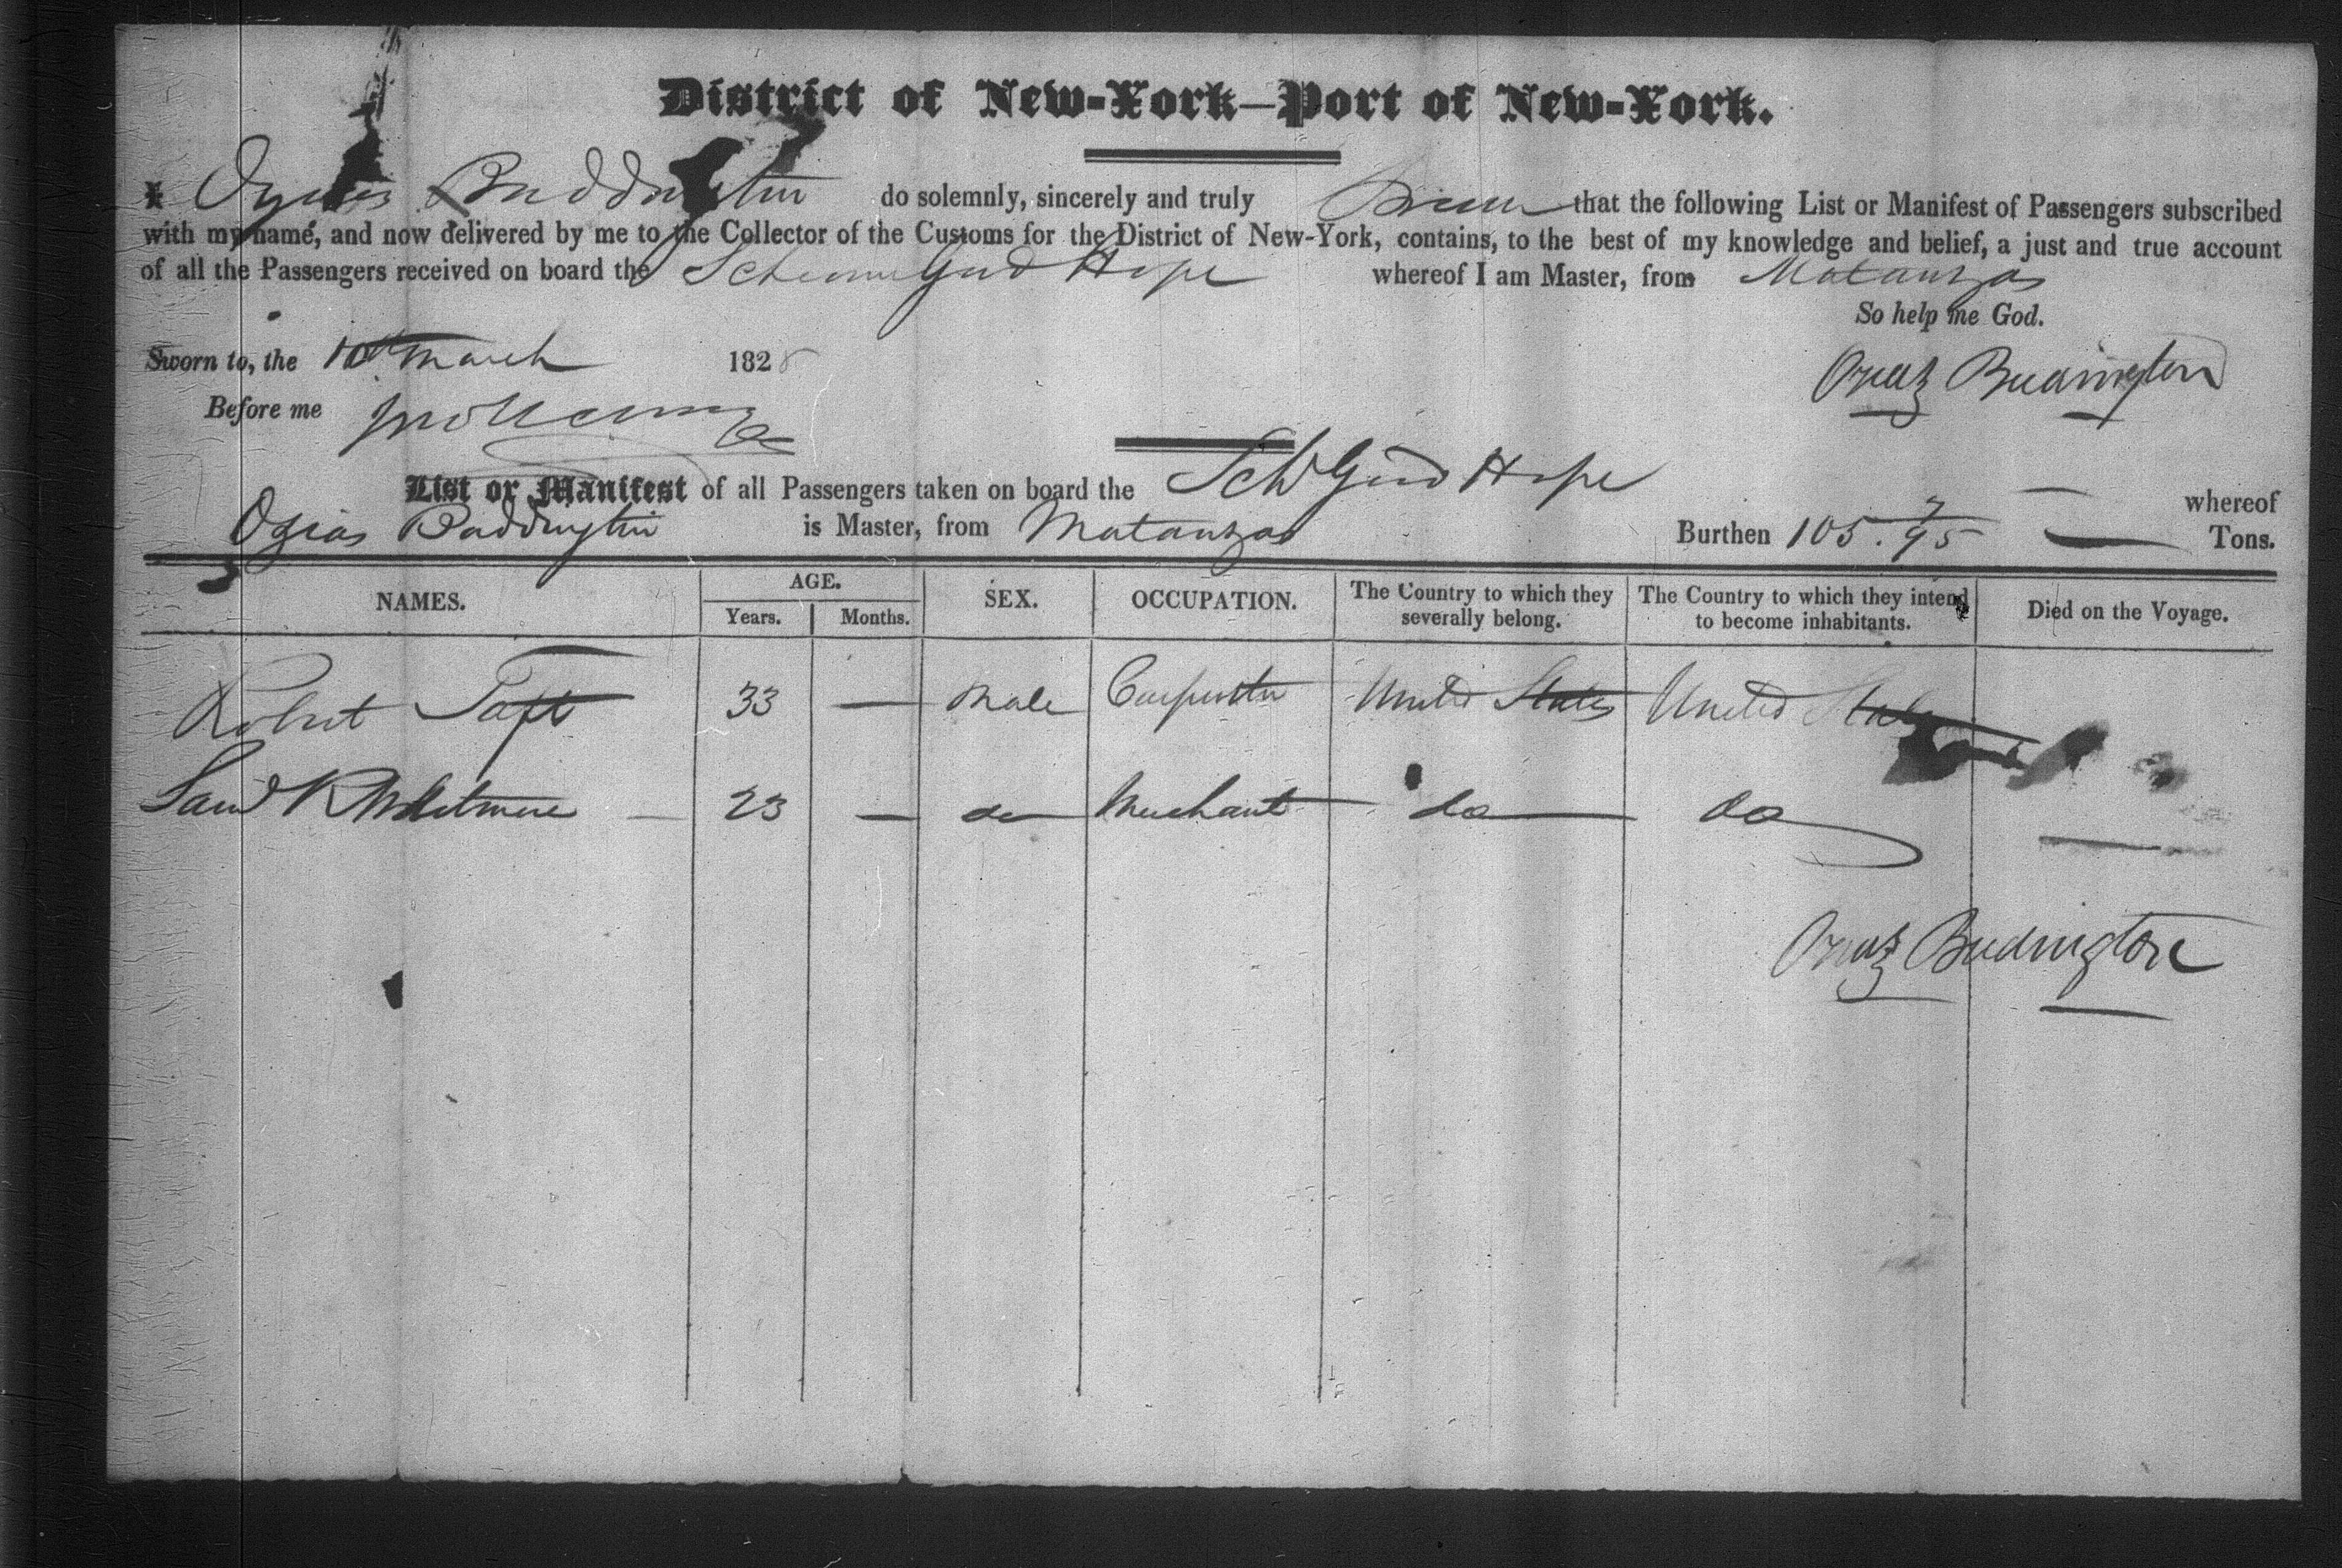 District of New-York—Port of New-York.
I Ozias Buddington do solemnly, sincerely and truly Swear that the following List or Manifest of Passengers subscribed
with my name, and now delivered by me to the Collector of the Customs for the District of New-York, contains, to the best of my knowledge and belief, a just and true account
of all the Passengers received on board the Schooner Good Hope whereof I am Master, from Matanzas
So help me God.
Sworn to, the 10th March 1828
Before me
Ozias Budington
List or Manifest of all Passengers taken on board the Schr Good Hope whereof
Ozias Buddington is Master, from Matanzas Burthen 105. 7/95 Tons.
NAMES. AGE. Years. Months. SEX. OCCUPATION. The Country to which they severally belong. The Country to which they intend to become inhabitants. Died on the Voyage.
Robert Taft 33 — Male Carpenter United States United States
Saml R Whitmore — 23 — do Merchant do do
Ozias Budington